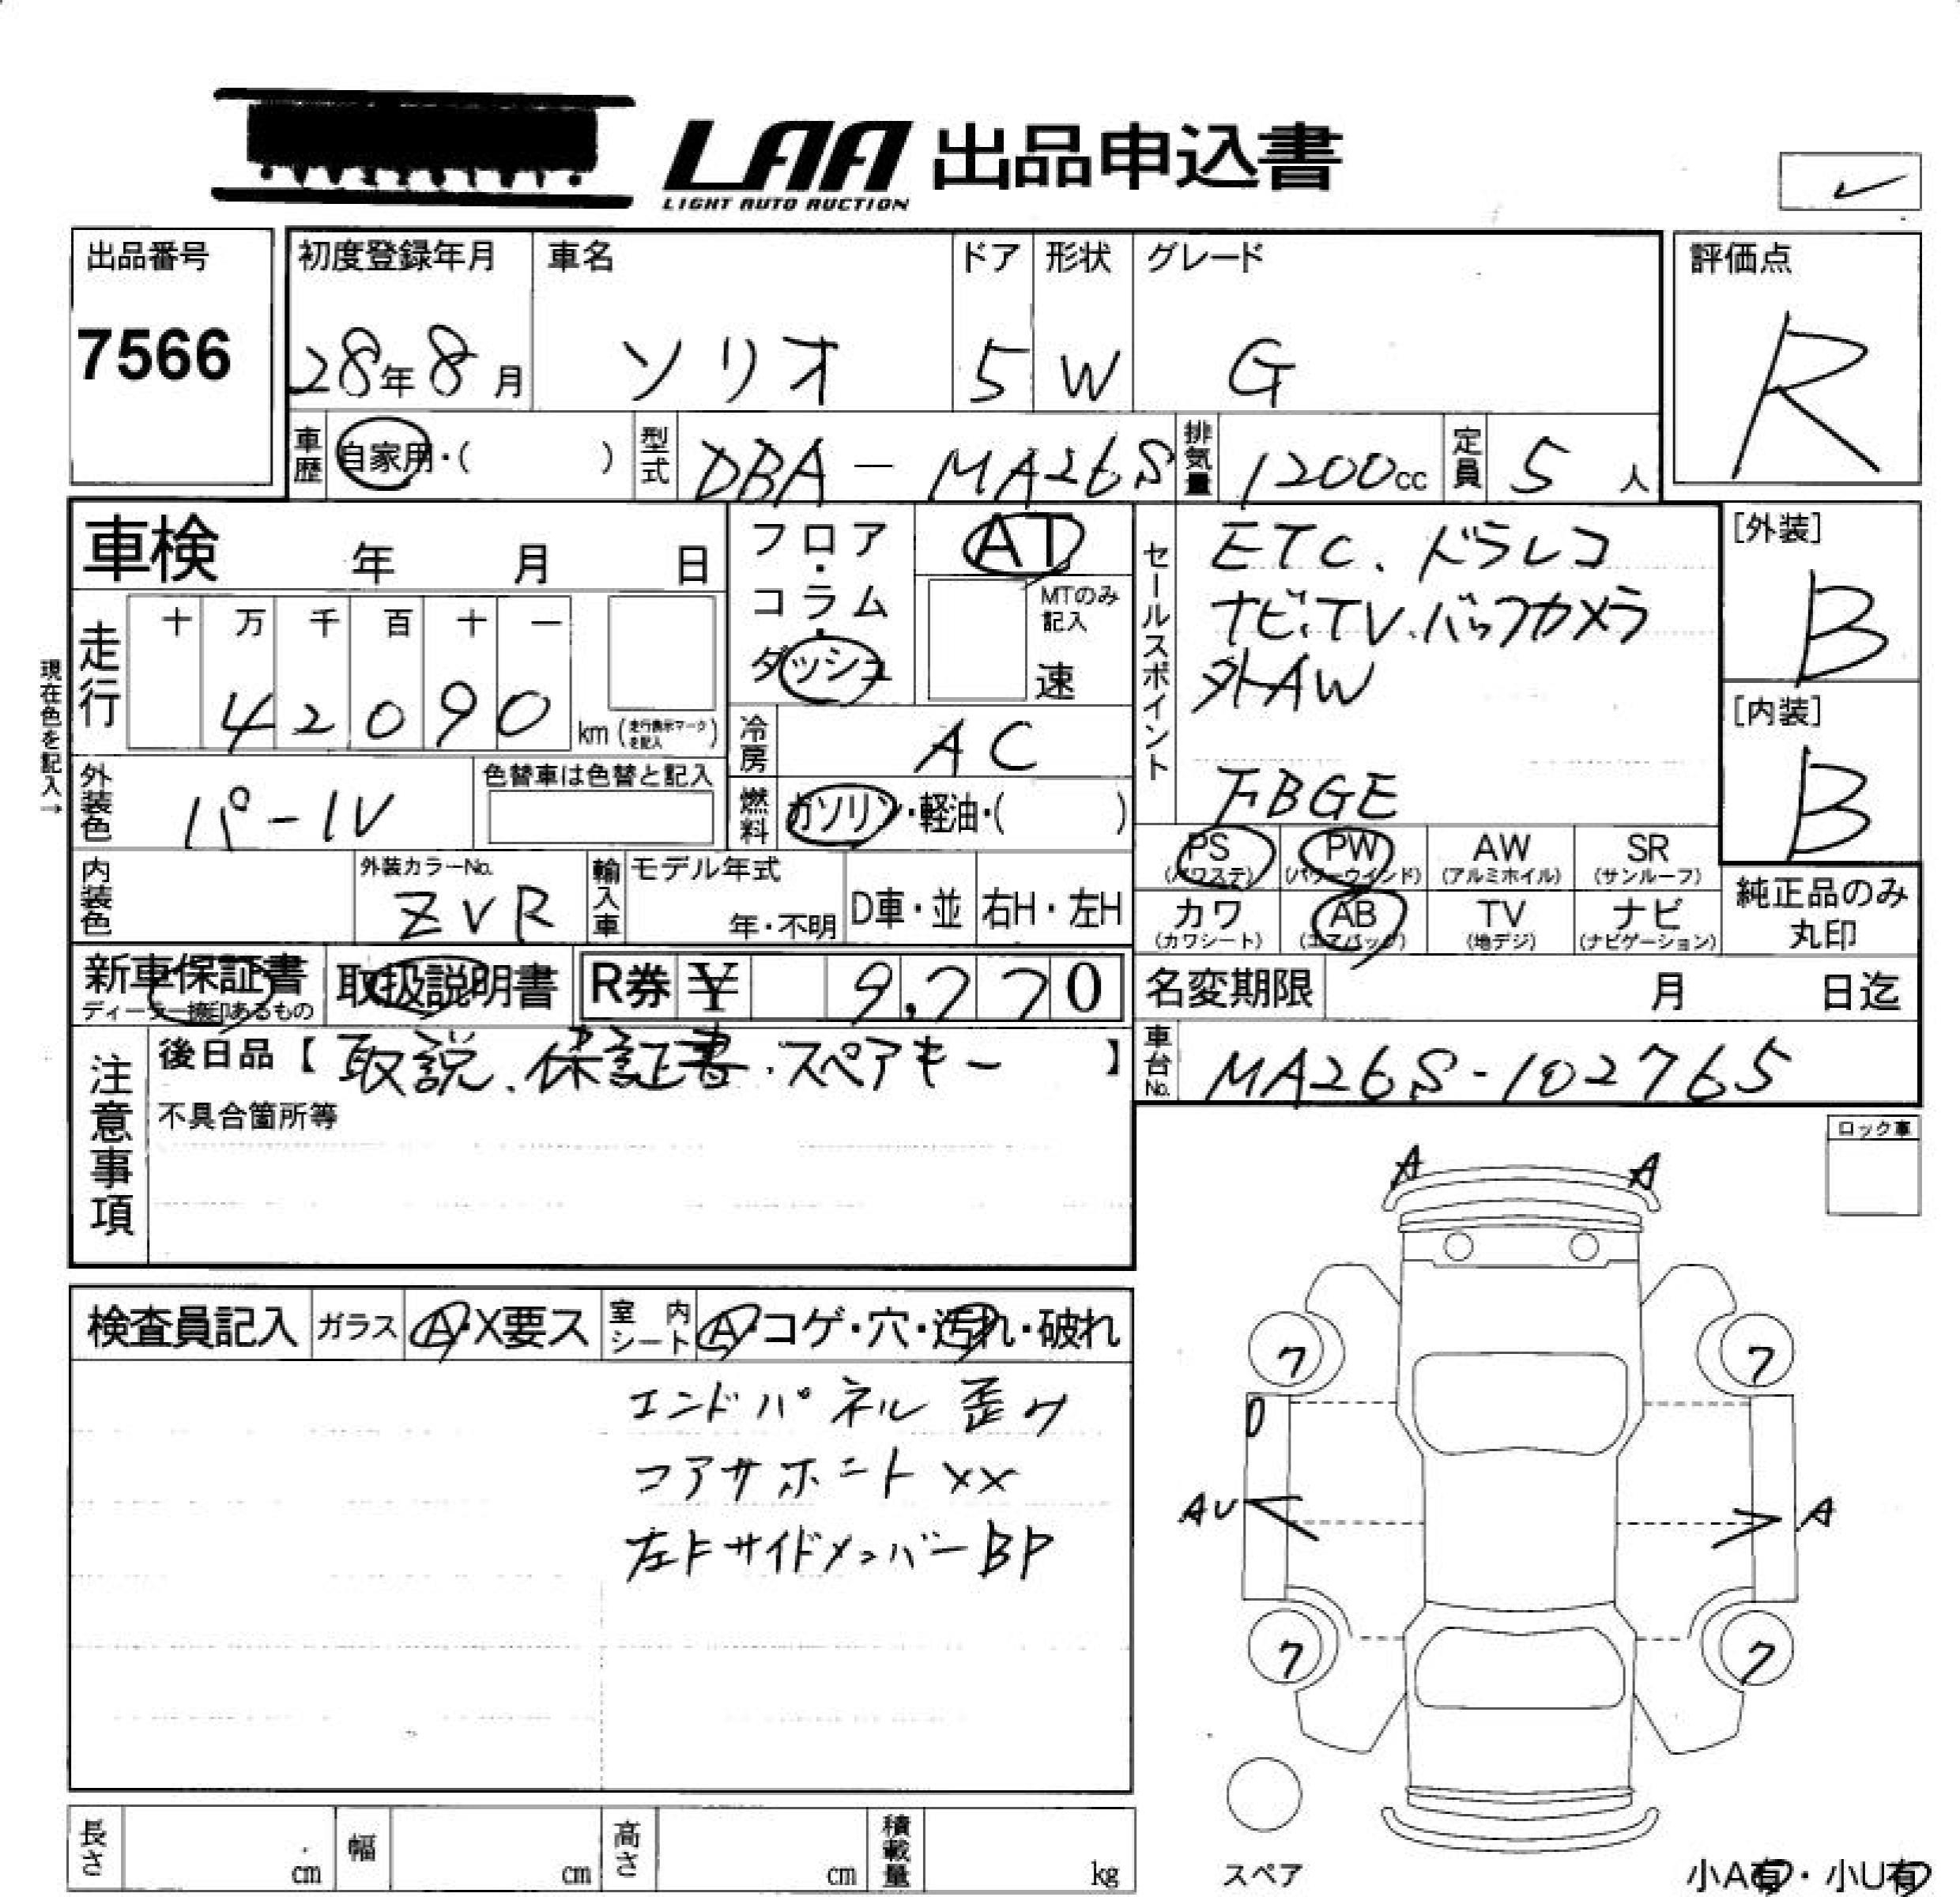 LAA 出品申込書
LIGHT AUTO AUCTION
出品番号
7566
初度登録年月
28年8月
車名
ソリオ
ドア
5
形状
W
グレード
G
評価点
R
車歴 自家用・( )
型式 DBA-MA26S
排気量 1200cc
定員 5人
車検 年 月 日
現在色を記入→
走行
十 万 千 百 十 一
4 2 0 9 0
km(走行表示マークを記入)
フロア・コラム・ダッシュ
AT
MTのみ記入
速
冷房 AC
燃料 ガソリン・軽油・( )
外装色 パール
色替車は色替と記入
内装色
外装カラーNo.
ZVR
輸入車
モデル年式
年・不明
D車・並
右H・左H
セールスポイント
ETC、ドラレコ
ナビ、TV、バックカメラ
外AW
下BGE
[外装]
B
[内装]
B
PS (パワステ)
PW (パワーウインド)
AW (アルミホイル)
SR (サンルーフ)
カワ (カワシート)
AB (エアバック)
TV (地デジ)
ナビ (ナビゲーション)
純正品のみ丸印
新車保証書
取扱説明書
R券 ¥ 9,770
名変期限 月 日迄
車台No. MA26S-102765
注意事項
後日品【取説、保証書、スペアキー】
不具合箇所等
ロック車
検査員記入
ガラス A・X要ス
室内シート A・コゲ・穴・汚れ・破れ
エンドパネル 歪み
コアサポート XX
左Fサイドメンバー BP
A A
7 7
AU A
7 7
長さ cm
幅 cm
高さ cm
積載量 kg
スペア
小A有・小U有